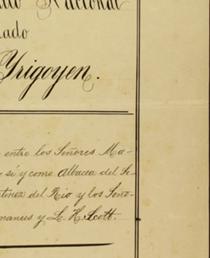 Nacional
lado
Yrigoyen.
entre los Señores Ma-
sí y como Albacea del Se-
tinez del Rio y los Seño-
mances y L. H. Scott.